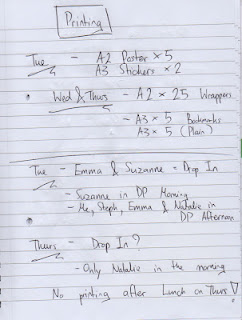 Printing
Tue - A2 Poster × 5
A3 Stickers × 2
Wed & Thurs - A2 × 25 Wrappers
- A3 × 5 Bookmarks
A3 × 5 (Plain)
Tue - Emma & Suzanne - Drop In
- Suzanne in DP Morning
- Me, Steph, Emma & Natalie in
DP Afternoon
Thurs - Drop In?
- Only Natalie in the morning
No printing after Lunch on Thurs!